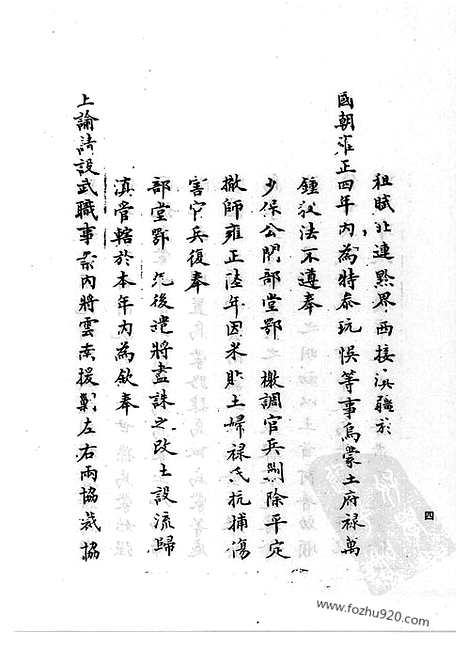 租賦北連黔界西接滇疆於
國朝雍正四年內為特泰玩悞等事烏蒙土府祿萬
鍾敗法不遵奉
少保公閣部堂鄂 檄調官兵勦除平定
撤師雍正陸年因米貼土婦祿氏抗捕傷
害官兵復奉
部堂鄂 先後遣將盡誅之改土設流歸
滇管轄於本年內為欽奉
上諭請設武職事案內將雲南援剿左右兩協裁協
四
www.fozhu920.com